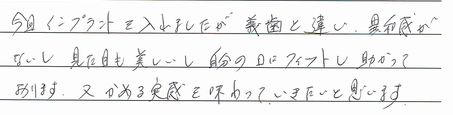 今回インプラントを入れましたが 義歯と違い、異和感が
ないし 見た目も美しいし 自分の口にフィットし 助かって
おります。又 かめる実感を味わっていきたいと思います